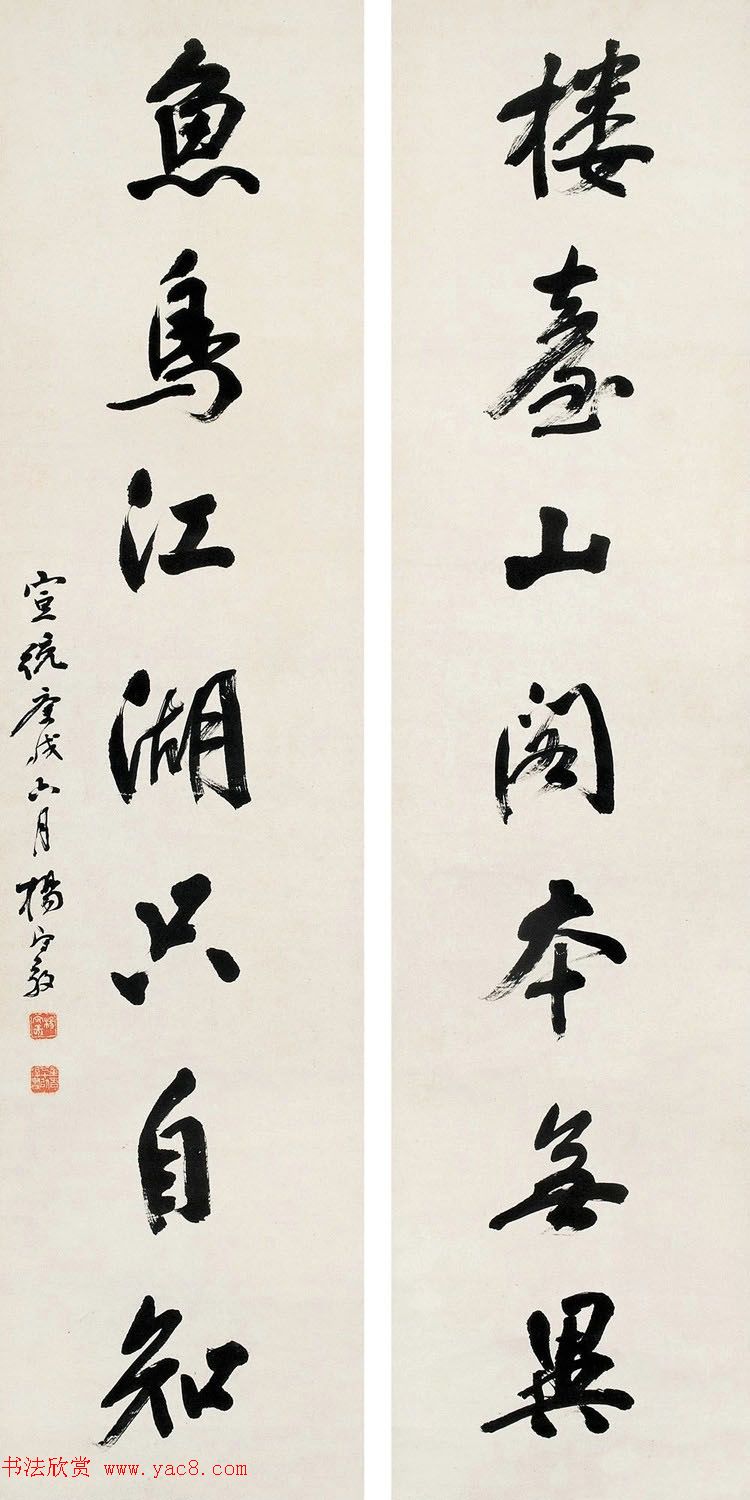 樓臺山閣本無異
魚鳥江湖只自知
宣統庚戌六月楊守敬
书法欣赏 www.yac8.com